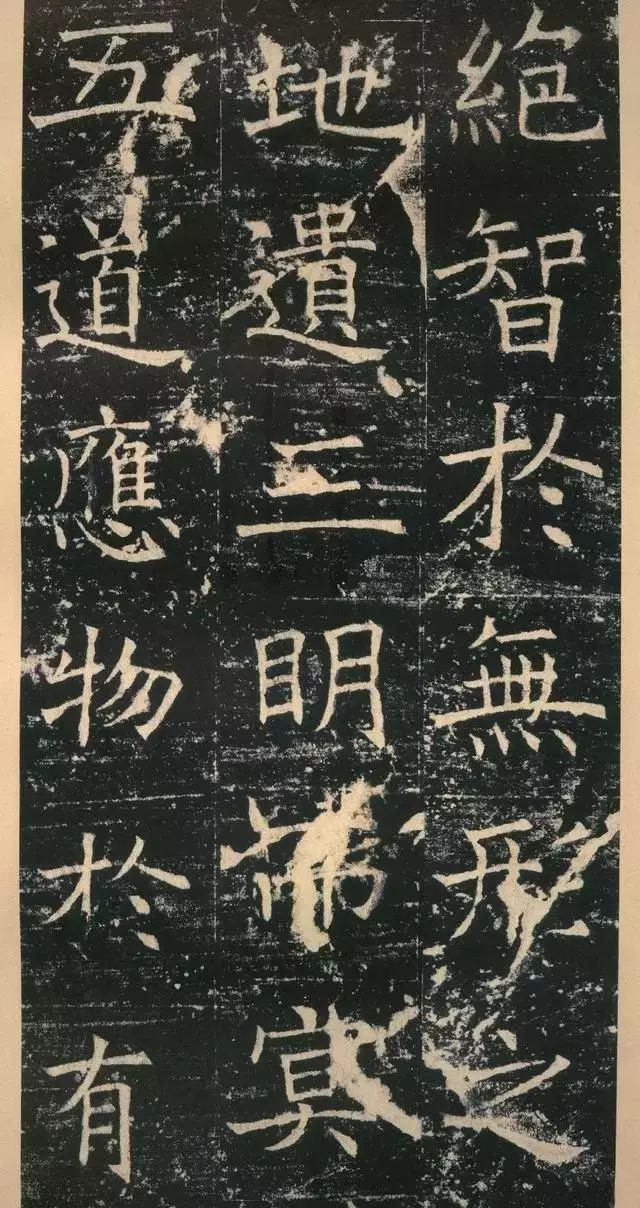 絶智於無形之
地遺三眀歸冥
五道應物於有